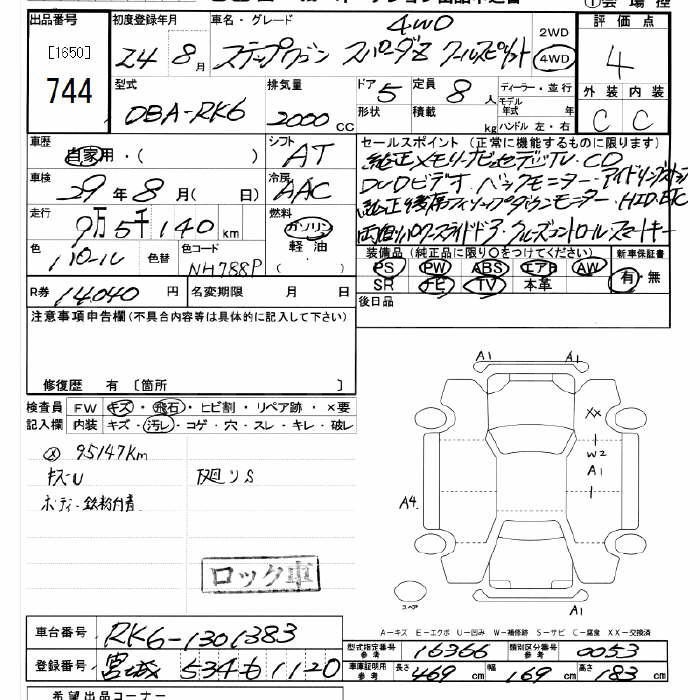 出品番号 初度登録年月 車名・グレード 4WD 評価点
[1650] 24 8月 ステップワゴン スパーダZ クールスピリット 2WD 4WD 4
744 型式 排気量 ドア 5 定員 8人 ディーラー・並行 外装 内装
DBA-RK6 2000cc 形状 積載 kg モデル年式 年式 ハンドル 左・右 C C
車歴 自家用・( ) シフト AT セールスポイント (正常に機能するものに限ります)
純正メモリナビ セデジTV・CD
車検 29年8月( 日) 冷房 AAC DVDビデオ・バックモニター・アイドリングストップ
走行 9万5千140km 燃料 ガソリン 軽油 ( )
両側パワースライドドア・クルーズコントロール・スマートキー
色 パール 色替 色コード NH788P 装備品 (純正品に限り○をつけてください) 新車保証書
PS PW ABS エアB AW 有・無
SR TV 本革
R券 14040円 名変期限 月 日 後日品
注意事項申告欄(不具合内容等は具体的に記入して下さい)
修復歴 有 [箇所 ]
検査員 FW キズ・飛石・ヒビ割・リペア跡・×要
記入欄 内装 キズ・汚レ・コゲ・穴・スレ・キレ・破レ
95147km
キズU 下廻りS
ボディ鉄粉付着
ロック車
A1 A1
XX
W2
A1
A4
スペア
A1
A―キズ E―エクボ U―凹み W―補修跡 S―サビ C―腐食 XX―交換済
車台番号 RK6-1301383
型式指定番号参考 16366 類別区分番号参考 0053
登録番号 宮城 534 も 1120
車庫証明用参考 長さ 469cm 幅 169cm 高さ 183cm
希望出品コーナー